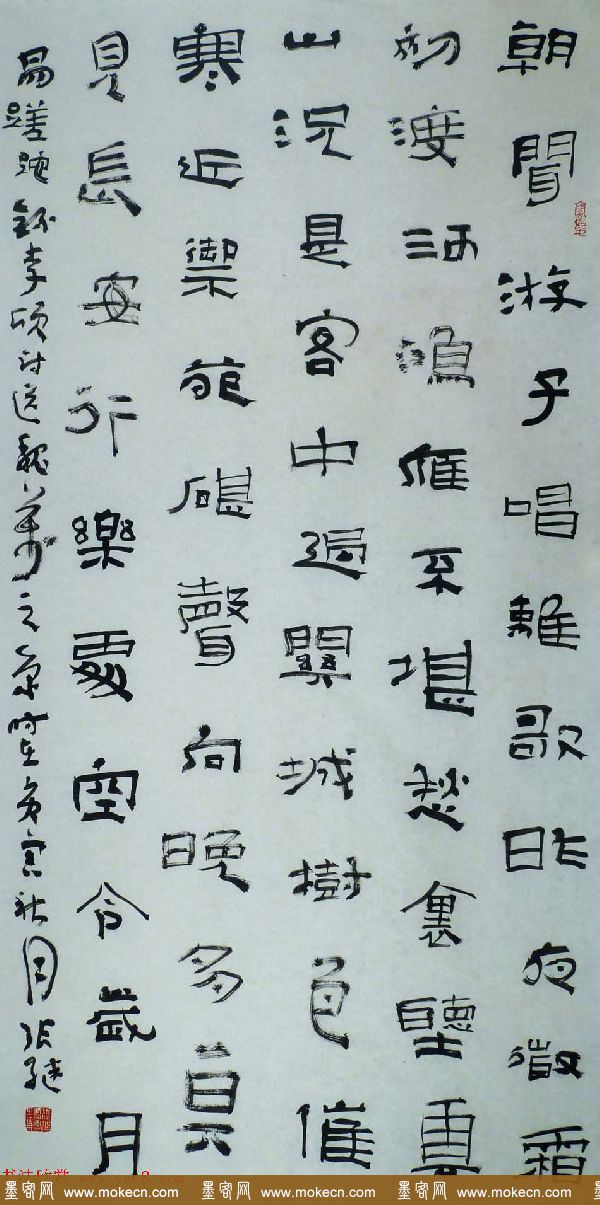 朝聞游子唱離歌昨夜微霜
初渡河鴻雁不堪愁裏聽雲
山況是客中過關城樹色催
寒近禦苑碪聲向晚多莫
見長安行樂處空令歲月
易蹉跎錄李頎詩送魏萬之京時在秋月張继
墨客网 www.mokecn.com 墨客网 www.mokecn.com 墨客网 www.mokecn.com